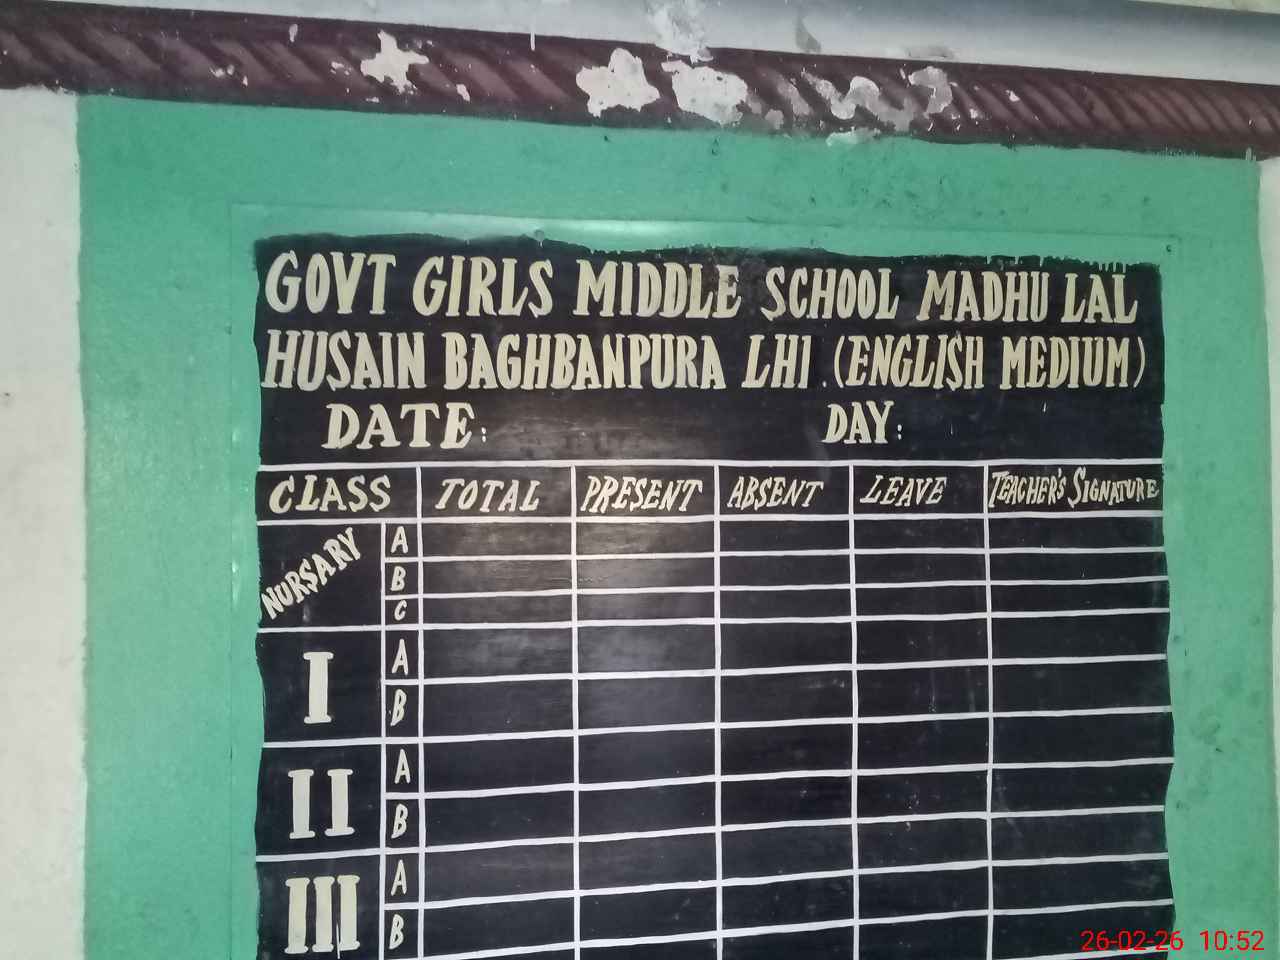 GOVT GIRLS MIDDLE SCHOOL MADHU LAL
HUSAIN BAGHBANPURA LHI .(ENGLISH MEDIUM)
DATE: DAY:
CLASS TOTAL PRESENT ABSENT LEAVE TEACHER'S SIGNATURE
NURSARY A
B
C
I A
B
II A
B
III A
B
26-02-26 10:52